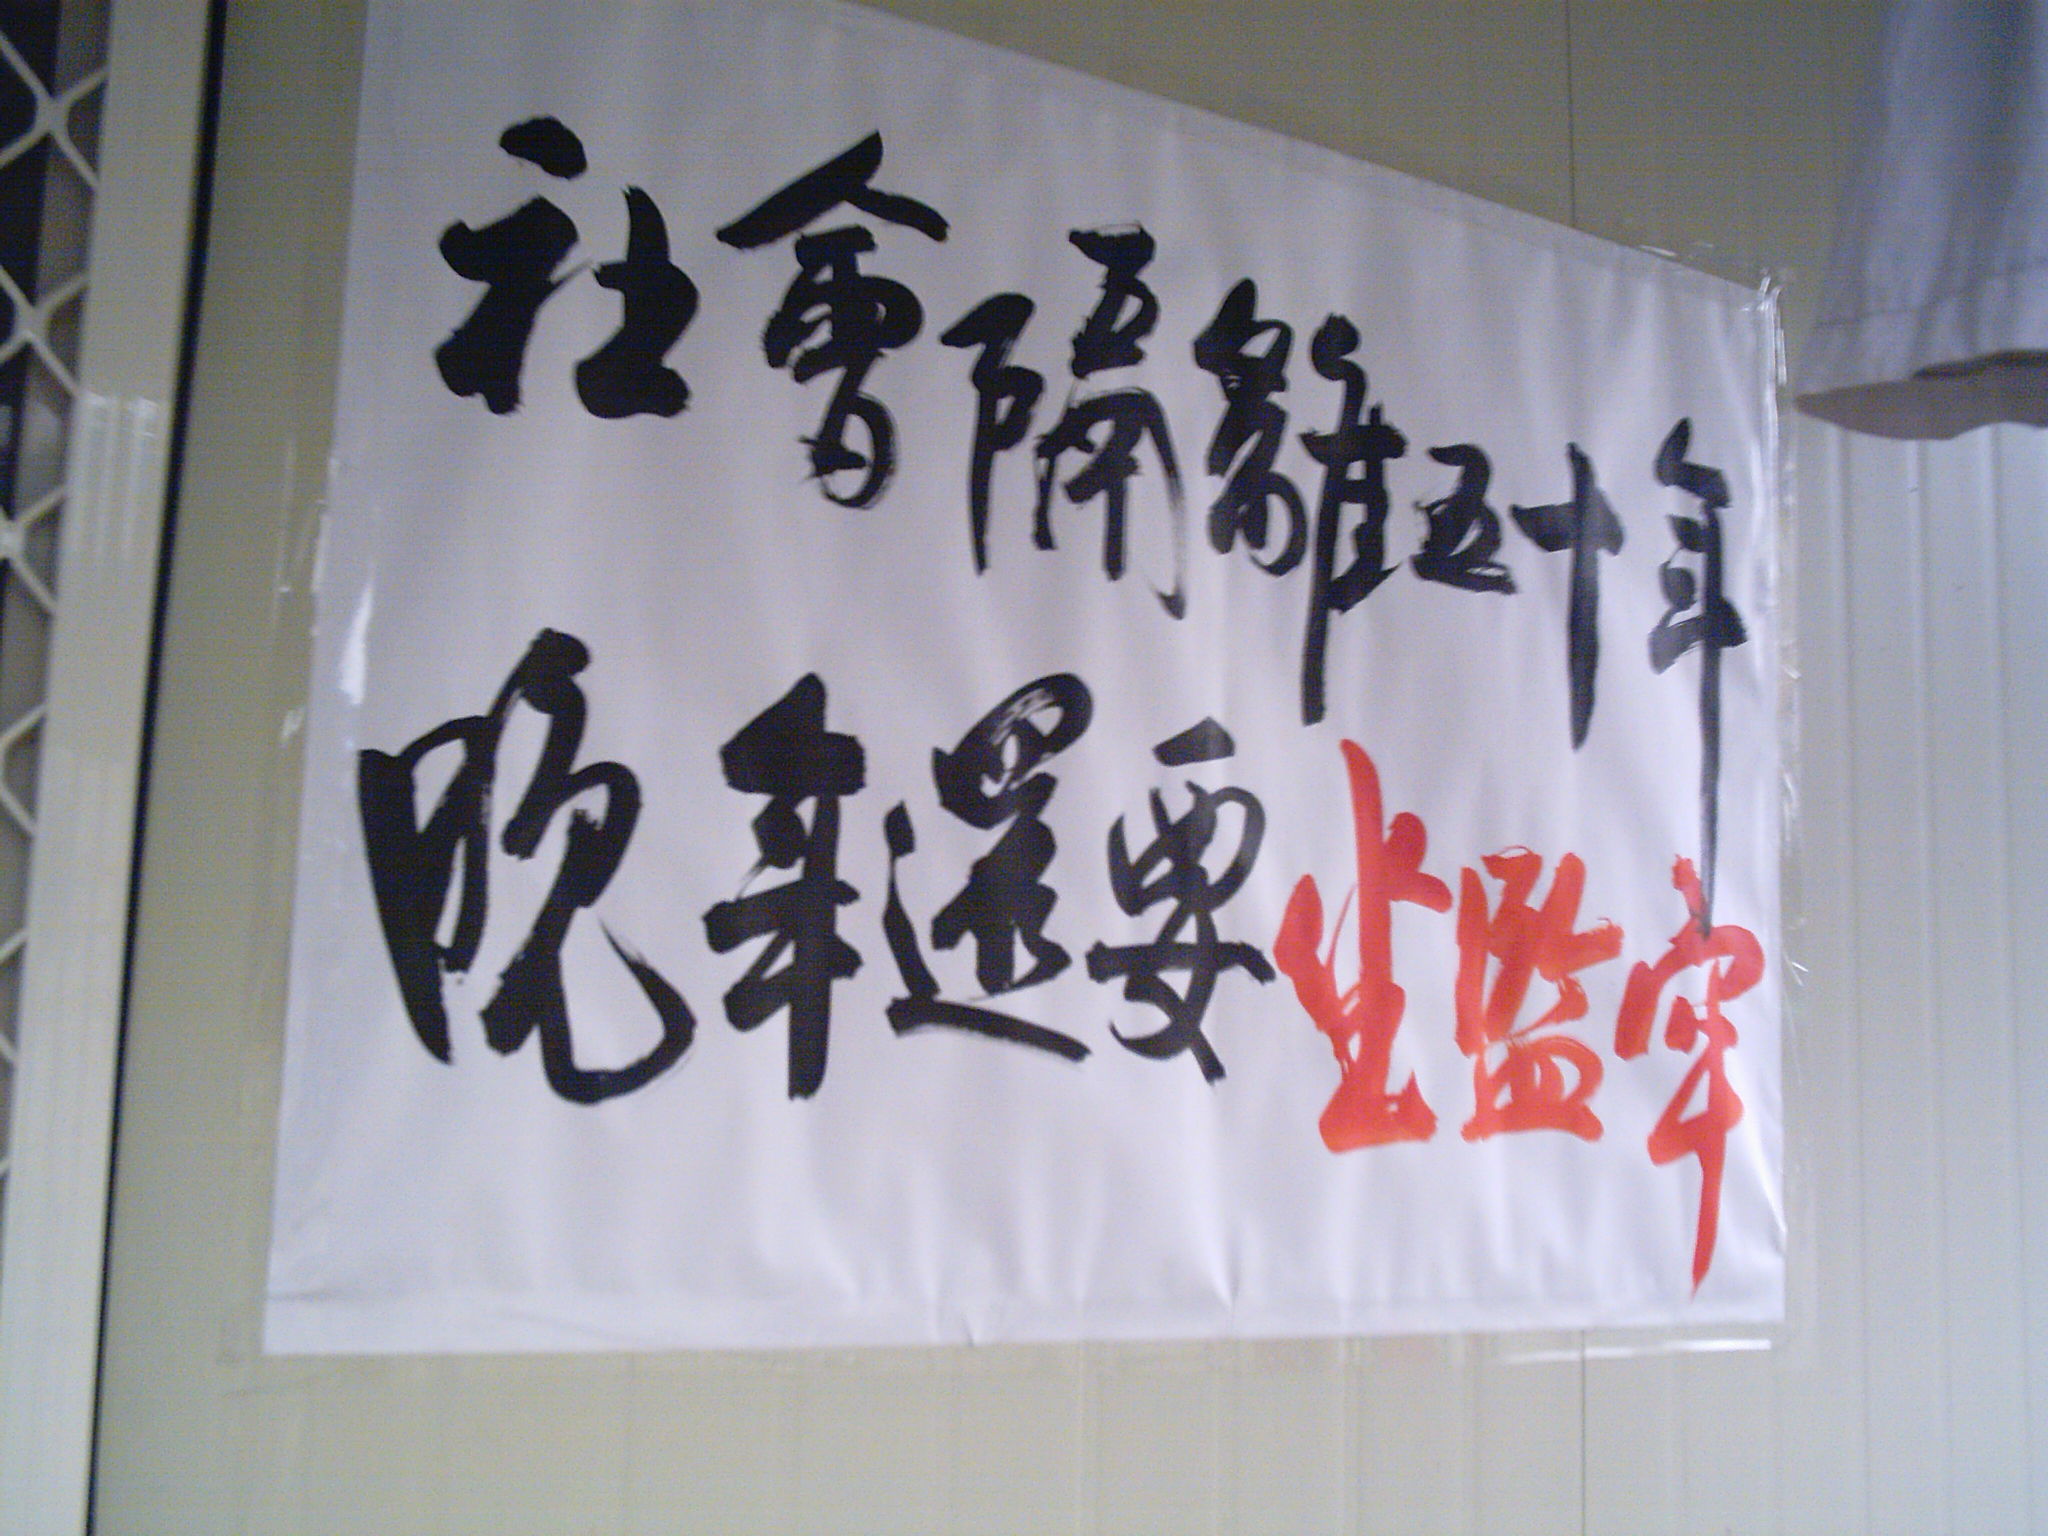 社會隔離五十年
晚年還要坐監牢